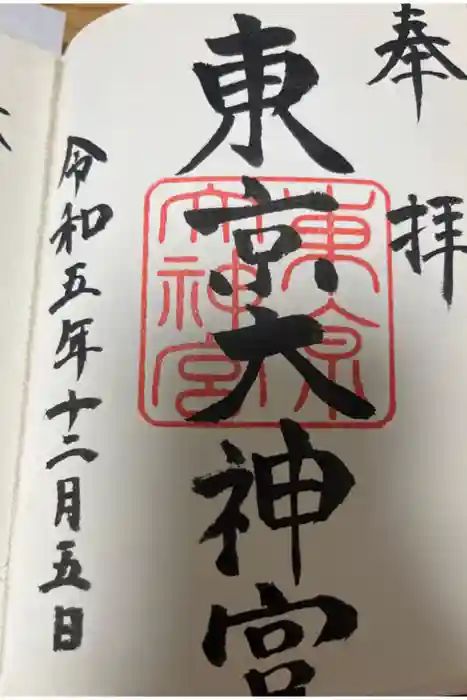 奉拝
東京大神宮
東京大神宮
令和五年十二月五日